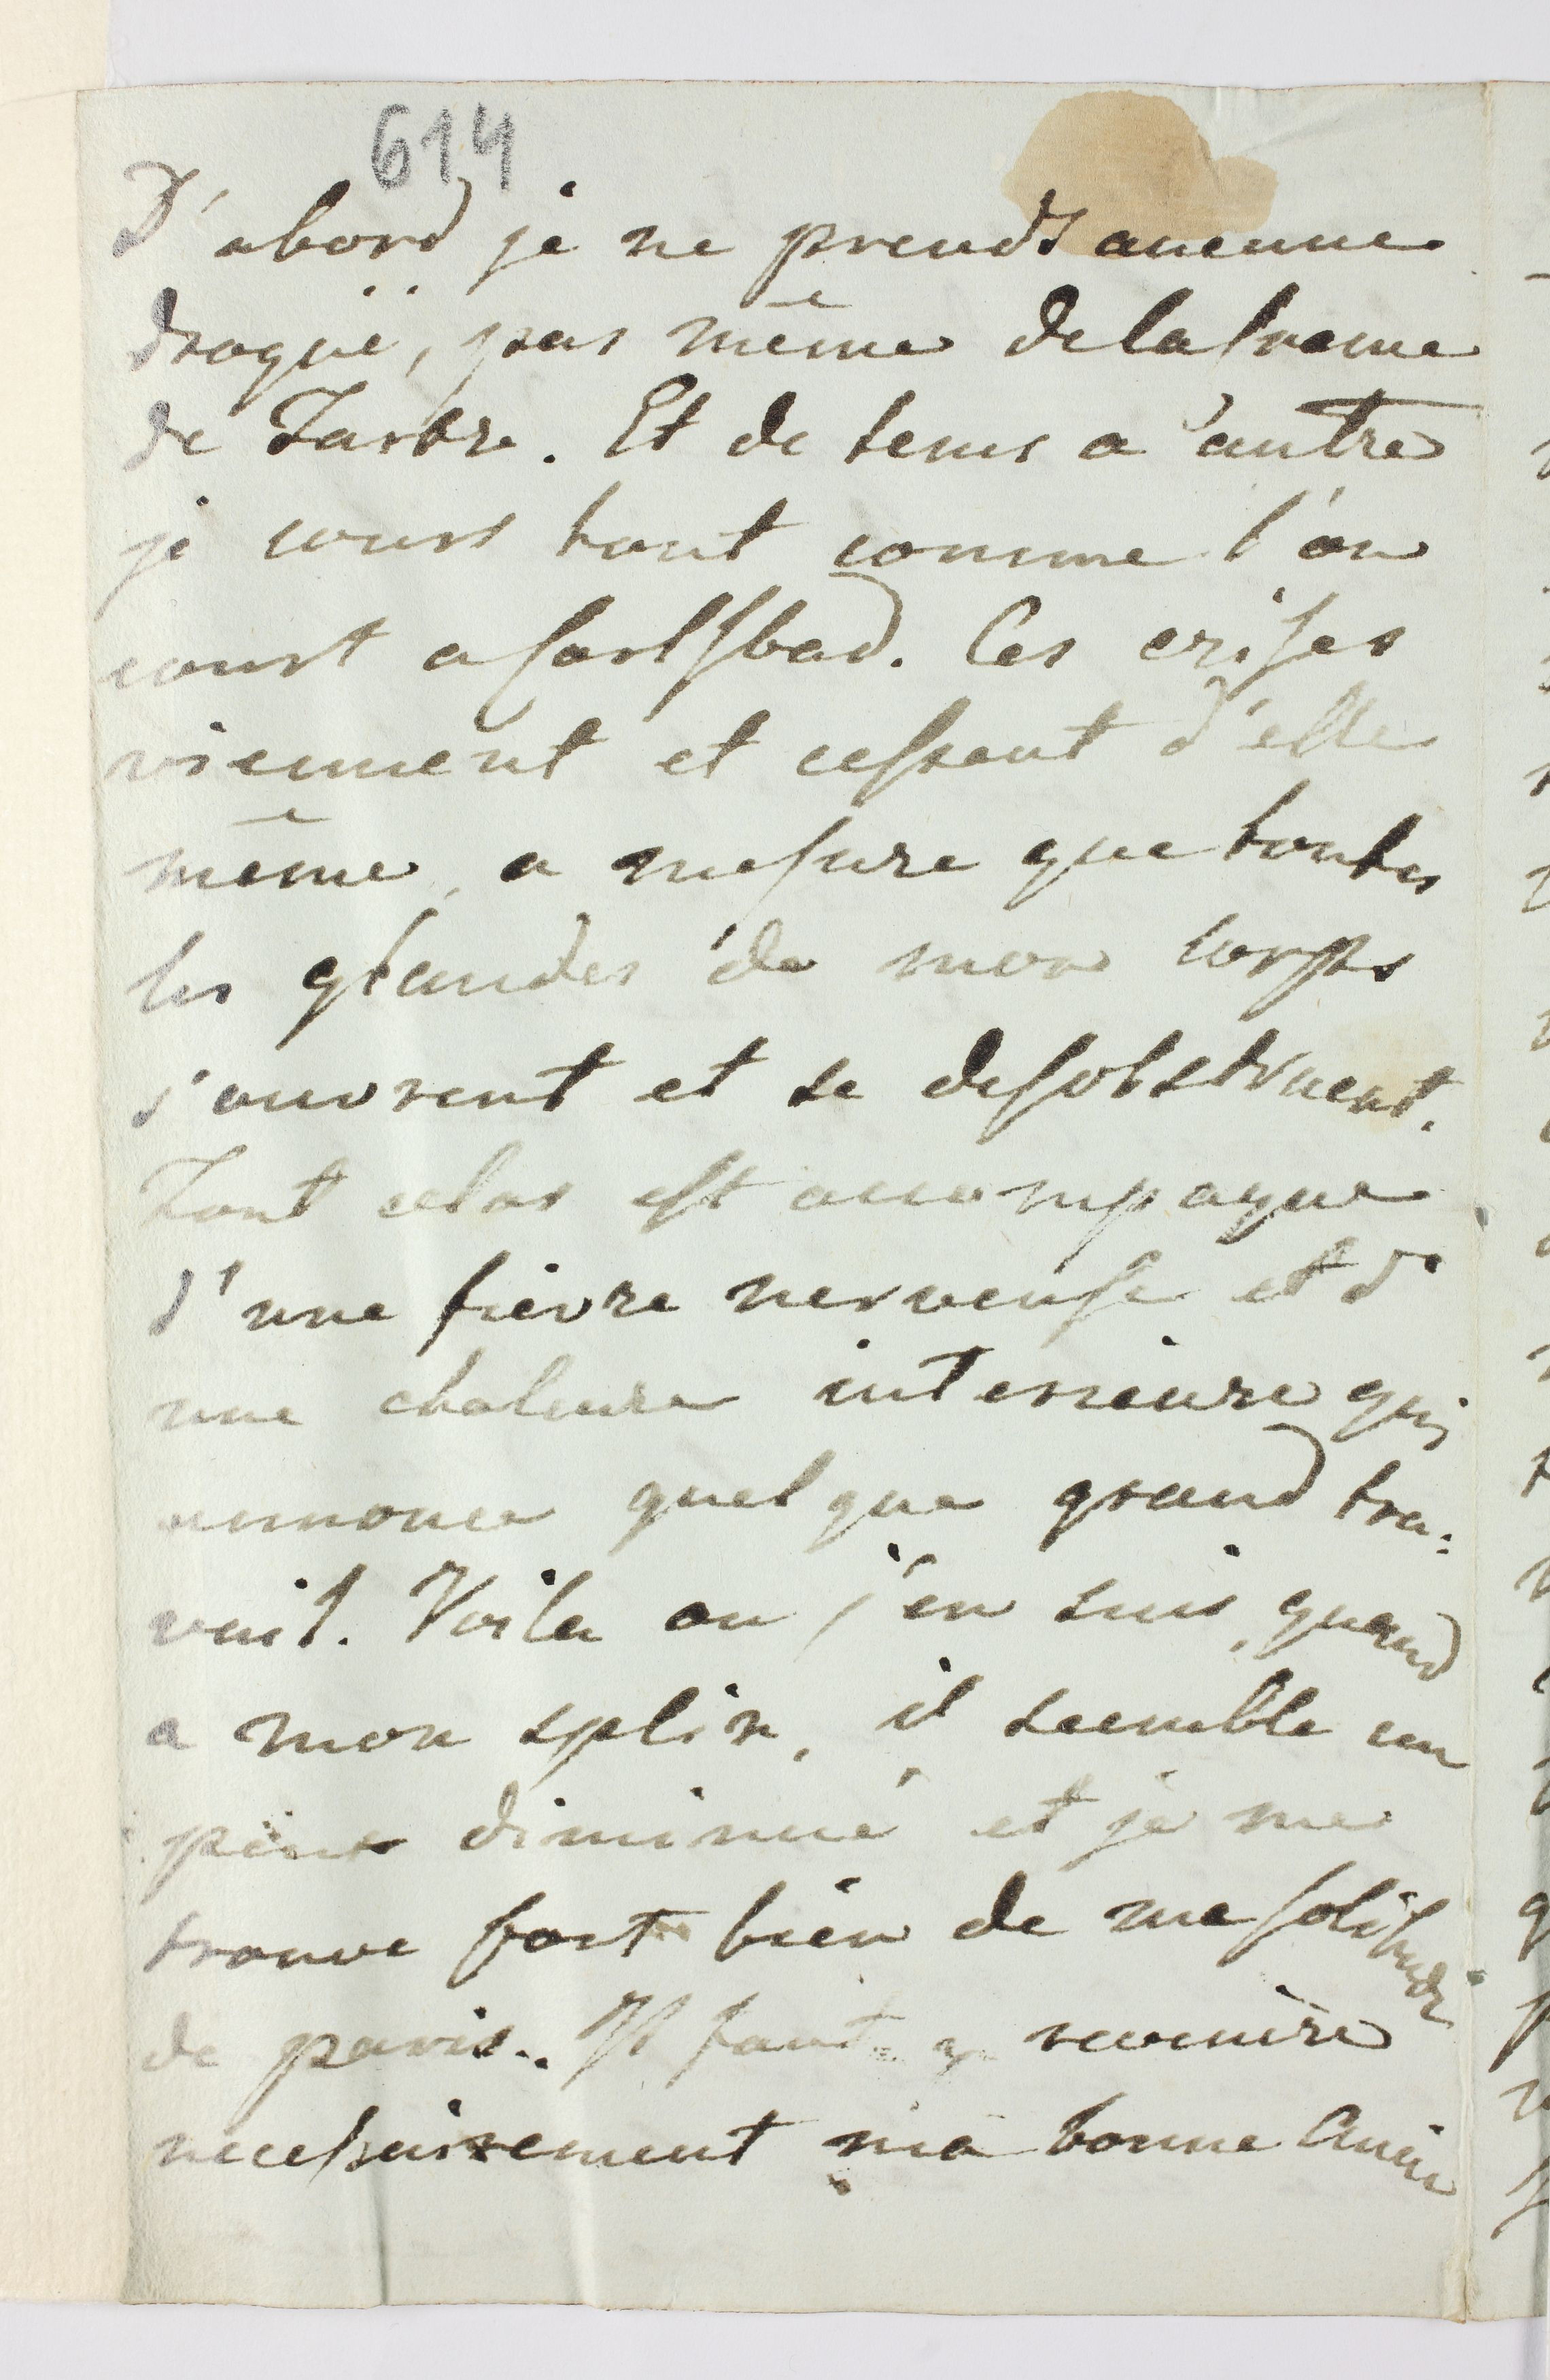 614
D'abord je ne prends aucune
droguë, pas même de la creme
de Tartre. Et de tems a autre
je cours tout comme l'on
court a Carlsbad. Ces crises
viennent et cessent d'elle
même, a mesure que toutes
les glandes de mon corps
s'ouvrent et se desobstruent.
Tout celas est accompagne
d'une fievre nerveuse et d'
une chaleure interieure qui
annonce quelque grand tra:
vail. Voila ou j'en suis, quand
a mon splin, il seemble un
peux diminué et je me
trouve fort bien de ma solitude
de paris.. Il faut y revenire
necessairement ma bonne Amie